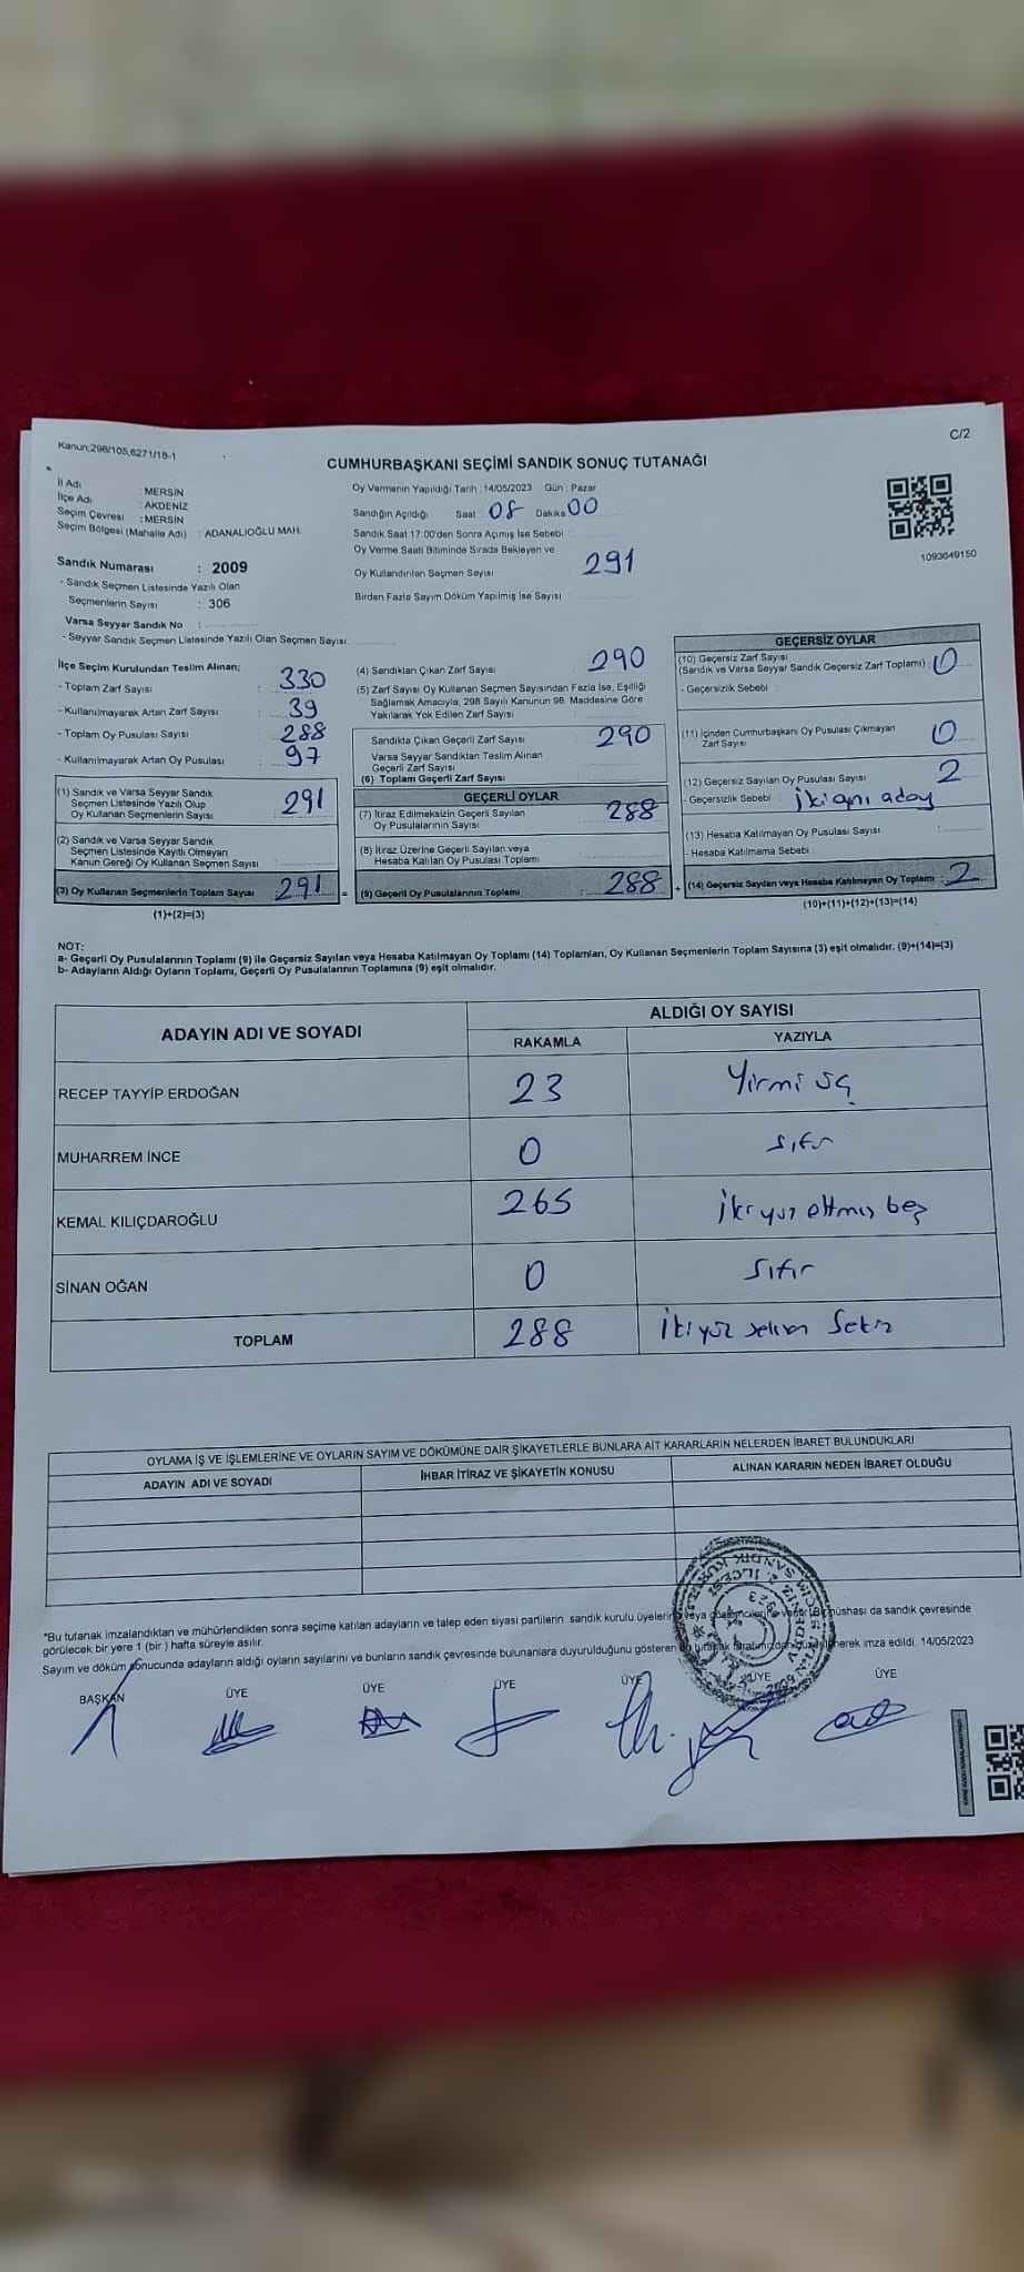 Kanun:298/105,6271/18-1
C/2
CUMHURBAŞKANI SEÇİMİ SANDIK SONUÇ TUTANAĞI
İl Adı : MERSİN
İlçe Adı : AKDENİZ
Seçim Çevresi : MERSİN
Seçim Bölgesi (Mahalle Adı) : ADANALIOĞLU MAH.
Sandık Numarası : 2009
- Sandık Seçmen Listesinde Yazılı Olan
Seçmenlerin Sayısı : 306
Varsa Seyyar Sandık No :
- Seyyar Sandık Seçmen Listesinde Yazılı Olan Seçmen Sayısı:
Oy Vermenin Yapıldığı Tarih : 14/05/2023 Gün : Pazar
Sandığın Açıldığı Saat 08 Dakika 00
Sandık Saat 17:00'den Sonra Açımış İse Sebebi
Oy Verme Saati Bitiminde Sırada Bekleyen ve
Oy Kullandırılan Seçmen Sayısı 291
Birden Fazla Sayım Döküm Yapılmış İse Sayısı
1093049150
İlçe Seçim Kurulundan Teslim Alınan;
- Toplam Zarf Sayısı : 330
- Kullanılmayarak Artan Zarf Sayısı : 39
- Toplam Oy Pusulası Sayısı : 288
- Kullanılmayarak Artan Oy Pusulası : 97
(1) Sandık ve Varsa Seyyar Sandık
Seçmen Listesinde Yazılı Olup
Oy Kullanan Seçmenlerin Sayısı : 291
(2) Sandık ve Varsa Seyyar Sandık
Seçmen Listesinde Kayıtlı Olmayan
Kanun Gereği Oy Kullanan Seçmen Sayısı
(3) Oy Kullanan Seçmenlerin Toplam Sayısı 291 =
(1)+(2)=(3)
(4) Sandıktan Çıkan Zarf Sayısı 290
(5) Zarf Sayısı Oy Kullanan Seçmen Sayısından Fazla İse, Eşitliği
Sağlamak Amacıyla, 298 Sayılı Kanunun 98. Maddesine Göre
Yakılarak Yok Edilen Zarf Sayısı :
Sandıkta Çıkan Geçerli Zarf Sayısı 290
Varsa Seyyar Sandıktan Teslim Alınan
Geçerli Zarf Sayısı
(6) Toplam Geçerli Zarf Sayısı
GEÇERLİ OYLAR
(7) İtiraz Edilmeksizin Geçerli Sayılan
Oy Pusulalarının Sayısı 288
(8) İtiraz Üzerine Geçerli Sayılan veya
Hesaba Katılan Oy Pusulası Toplamı
(9) Geçerli Oy Pusulalarının Toplamı : 288 +
GEÇERSİZ OYLAR
(10) Geçersiz Zarf Sayısı
(Sandık ve Varsa Seyyar Sandık Geçersiz Zarf Toplamı) : 0
- Geçersizlik Sebebi :
(11) İçinden Cumhurbaşkanı Oy Pusulası Çıkmayan
Zarf Sayısı 0
(12) Geçersiz Sayılan Oy Pusulası Sayısı 2
- Geçersizlik Sebebi : iki aynı aday
(13) Hesaba Katılmayan Oy Pusulası Sayısı :
- Hesaba Katılmama Sebebi
(14) Geçersiz Sayılan veya Hesaba Katılmayan Oy Toplamı : 2
(10)+(11)+(12)+(13)=(14)
NOT:
a- Geçerli Oy Pusulalarının Toplamı (9) ile Geçersiz Sayılan veya Hesaba Katılmayan Oy Toplamı (14) Toplamları, Oy Kullanan Seçmenlerin Toplam Sayısına (3) eşit olmalıdır. (9)+(14)=(3)
b- Adayların Aldığı Oyların Toplamı, Geçerli Oy Pusulalarının Toplamına (9) eşit olmalıdır.
ADAYIN ADI VE SOYADI
ALDIĞI OY SAYISI
RAKAMLA YAZIYLA
RECEP TAYYİP ERDOĞAN 23 Yirmi üç
MUHARREM İNCE 0 sıfır
KEMAL KILIÇDAROĞLU 265 iki yüz altmış beş
SİNAN OĞAN 0 Sıfır
TOPLAM 288 İki yüz seksen Sekiz
OYLAMA İŞ VE İŞLEMLERİNE VE OYLARIN SAYIM VE DÖKÜMÜNE DAİR ŞİKAYETLERLE BUNLARA AİT KARARLARIN NELERDEN İBARET BULUNDUKLARI
ADAYIN ADI VE SOYADI İHBAR İTİRAZ VE ŞİKAYETİN KONUSU ALINAN KARARIN NEDEN İBARET OLDUĞU
*Bu tutanak imzalandıktan ve mühürlendikten sonra seçime katılan adayların ve talep eden siyasi partilerin sandık kurulu üyelerine veya verilir. Bir nüshası da sandık çevresinde
görülecek bir yere 1 (bir ) hafta süreyle asılır.
Sayım ve döküm sonucunda adayların aldığı oyların sayılarını ve bunların sandık çevresinde bulunanlara duyurulduğunu gösteren imza edildi. 14/05/2023
BAŞKAN ÜYE ÜYE ÜYE ÜYE ÜYE ÜYE